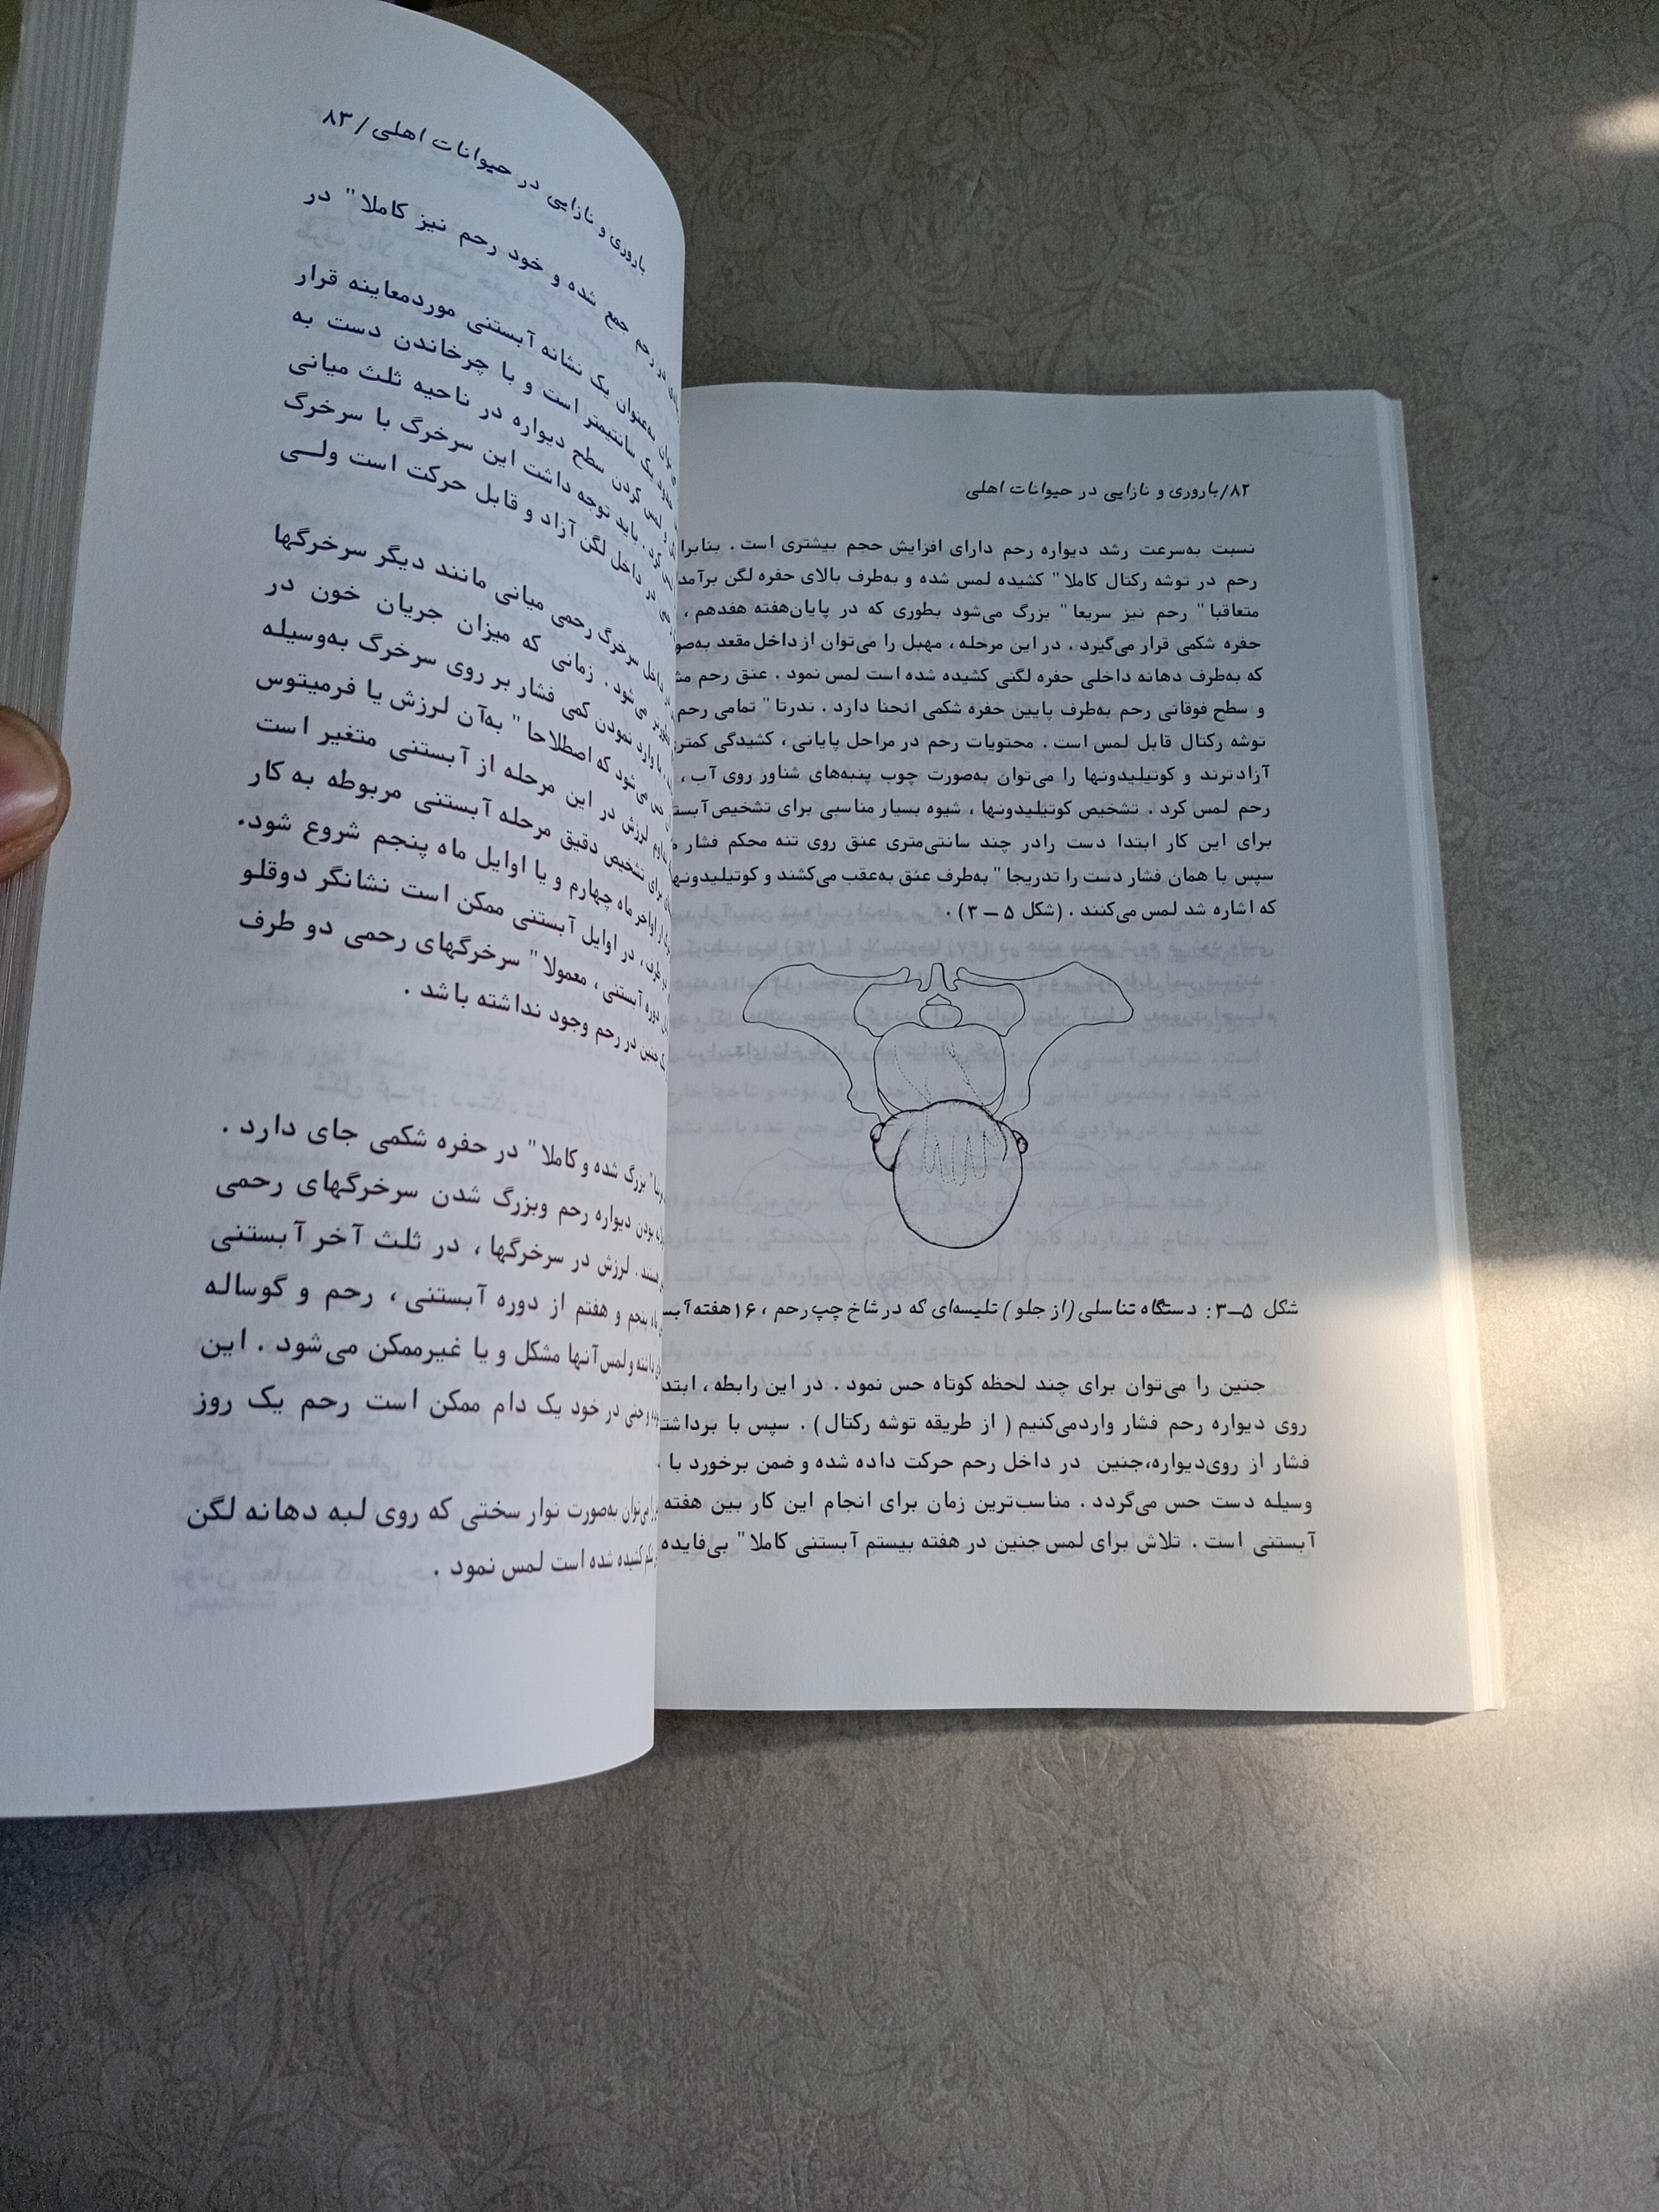 ۸۲/باروری و نازایی در حیوانات اهلی
نسبت به‌سرعت رشد دیواره رحم دارای افزایش حجم بیشتری است . بنابرا
رحم در توشه رکتال کاملا" کشیده لمس شده و به‌طرف بالای حفره لگن برآمد
متعاقبا" رحم نیز سریعا" بزرگ می‌شود بطوری که در پایان‌هفته هفدهم ،
حفره شکمی قرار می‌گیرد . در این مرحله ، مهبل را می‌توان از داخل مقعد به‌صو
که به‌طرف دهانه داخلی حفره لگنی کشیده شده است لمس نمود . عنق رحم
و سطح فوقانی رحم به‌طرف پایین حفره شکمی انحنا دارد . ندرتا" تمامی رحم
توشه رکتال قابل لمس است . محتویات رحم در مراحل پایانی ، کشیدگی کمتر
آزادترند و کوتیلیدونها را می‌توان به‌صورت چوب پنبه‌های شناور روی آب ،
رحم لمس کرد . تشخیص کوتیلیدونها ، شیوه بسیار مناسبی برای تشخیص آبست
برای این کار ابتدا دست رادر چند سانتی‌متری عنق روی تنه محکم فشار
سپس با همان فشار دست را تدریجا" به‌طرف عنق به‌عقب می‌کشند و کوتیلیدونها
که اشاره شد لمس می‌کنند . (شکل ۵ – ۳) .
شکل ۵–۳: دستگاه تناسلی (از جلو ) تلیسه‌ای که در شاخ چپ رحم ، ۱۶هفته آبس
جنین را می‌توان برای چند لحظه کوتاه حس نمود . در این رابطه ، ابتد
روی دیواره رحم فشار واردمی‌کنیم ( از طریقه توشه رکتال ) . سپس با برداشت
فشار از روی‌دیواره،جنین در داخل رحم حرکت داده شده و ضمن برخورد با
وسیله دست حس می‌گردد . مناسب‌ترین زمان برای انجام این کار بین هفته
آبستنی است . تلاش برای لمس جنین در هفته بیستم آبستنی کاملا" بی‌فایده
باروری و نازایی در حیوانات اهلی / ۸۳
در رحم جمع شده و خود رحم نیز کاملا" در
به‌عنوان یک نشانه آبستنی موردمعاینه قرار
یک سانتیمتر است و با چرخاندن دست به
و لمس کردن سطح دیواره در ناحیه ثلث میانی
کرد . باید توجه داشت این سرخرگ با سرخرگ
در داخل لگن آزاد و قابل حرکت است ولی
داخل سرخرگ رحمی میانی مانند دیگر سرخرگها
می‌شود . زمانی که میزان جریان خون در
با وارد نمودن کمی فشار بر روی سرخرگ به‌وسیله
می‌شود که اصطلاحا" به‌آن لرزش یا فرمیتوس
لرزش در این مرحله از آبستنی متغیر است
برای تشخیص دقیق مرحله آبستنی مربوطه به کار
از اواخر ماه چهارم و یا اوایل ماه پنجم شروع شود.
طرف ، در اوایل آبستنی ممکن است نشانگر دوقلو
دوره آبستنی ، معمولا" سرخرگهای رحمی دو طرف
جنین در رحم وجود نداشته باشد .
بزرگ شده و کاملا" در حفره شکمی جای دارد .
بودن دیواره رحم وبزرگ شدن سرخرگهای رحمی
هستند . لرزش در سرخرگها ، در ثلث آخر آبستنی
ماه پنجم و هفتم از دوره آبستنی ، رحم و گوساله
داشته و لمس آنها مشکل و یا غیرممکن می‌شود . این
و حتی در خود یک دام ممکن است رحم یک روز
را می‌توان به‌صورت نوار سختی که روی لبه دهانه لگن
کشیده شده است لمس نمود .